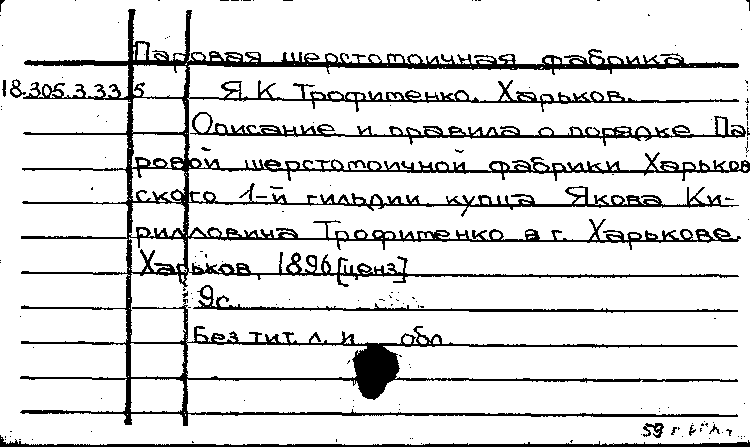 Паровая шерстомоичная фабрика
18.305.3.33 5 Я. К. Трофименко. Харьков.
Описание и правила о порядке Па
ровой шерстомоичной фабрики Харьков
ского 1-й гильдии купца Якова Ки-
рилловича Трофименко в г. Харькове.
Харьков, 1896 [ценз]
9с.
Без тит. л. и обл.